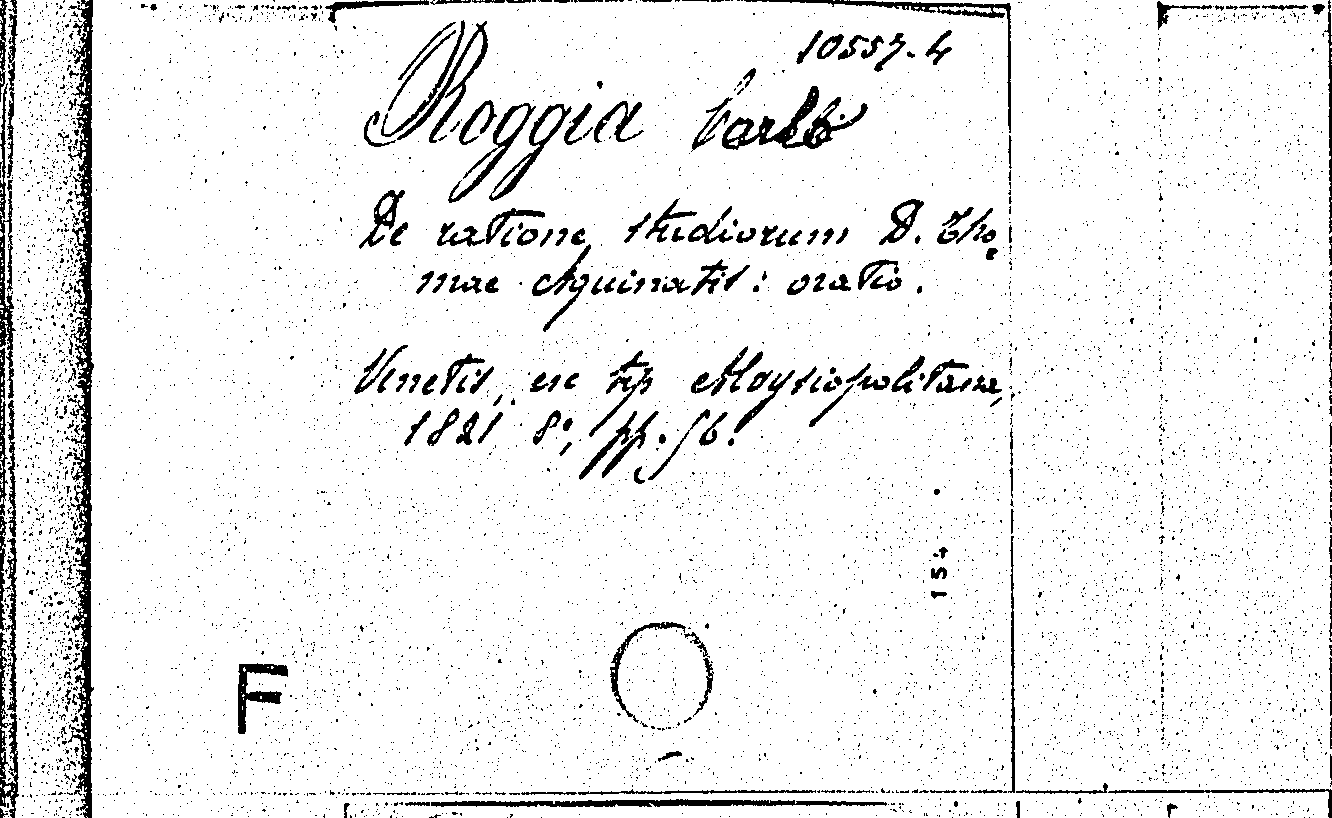 10557.4
Roggia Carlo
De ratione studiorum D. Tho=
mae Aquinatis: oratio.
Venetis, ex tip Aloysiopolitana,
1821 8°, pp. 56.
154
F